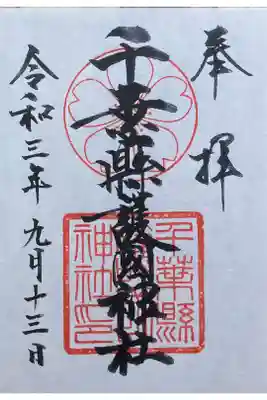 奉拝
千葉縣護國神社
令和三年九月十三日
千葉縣護國神社印